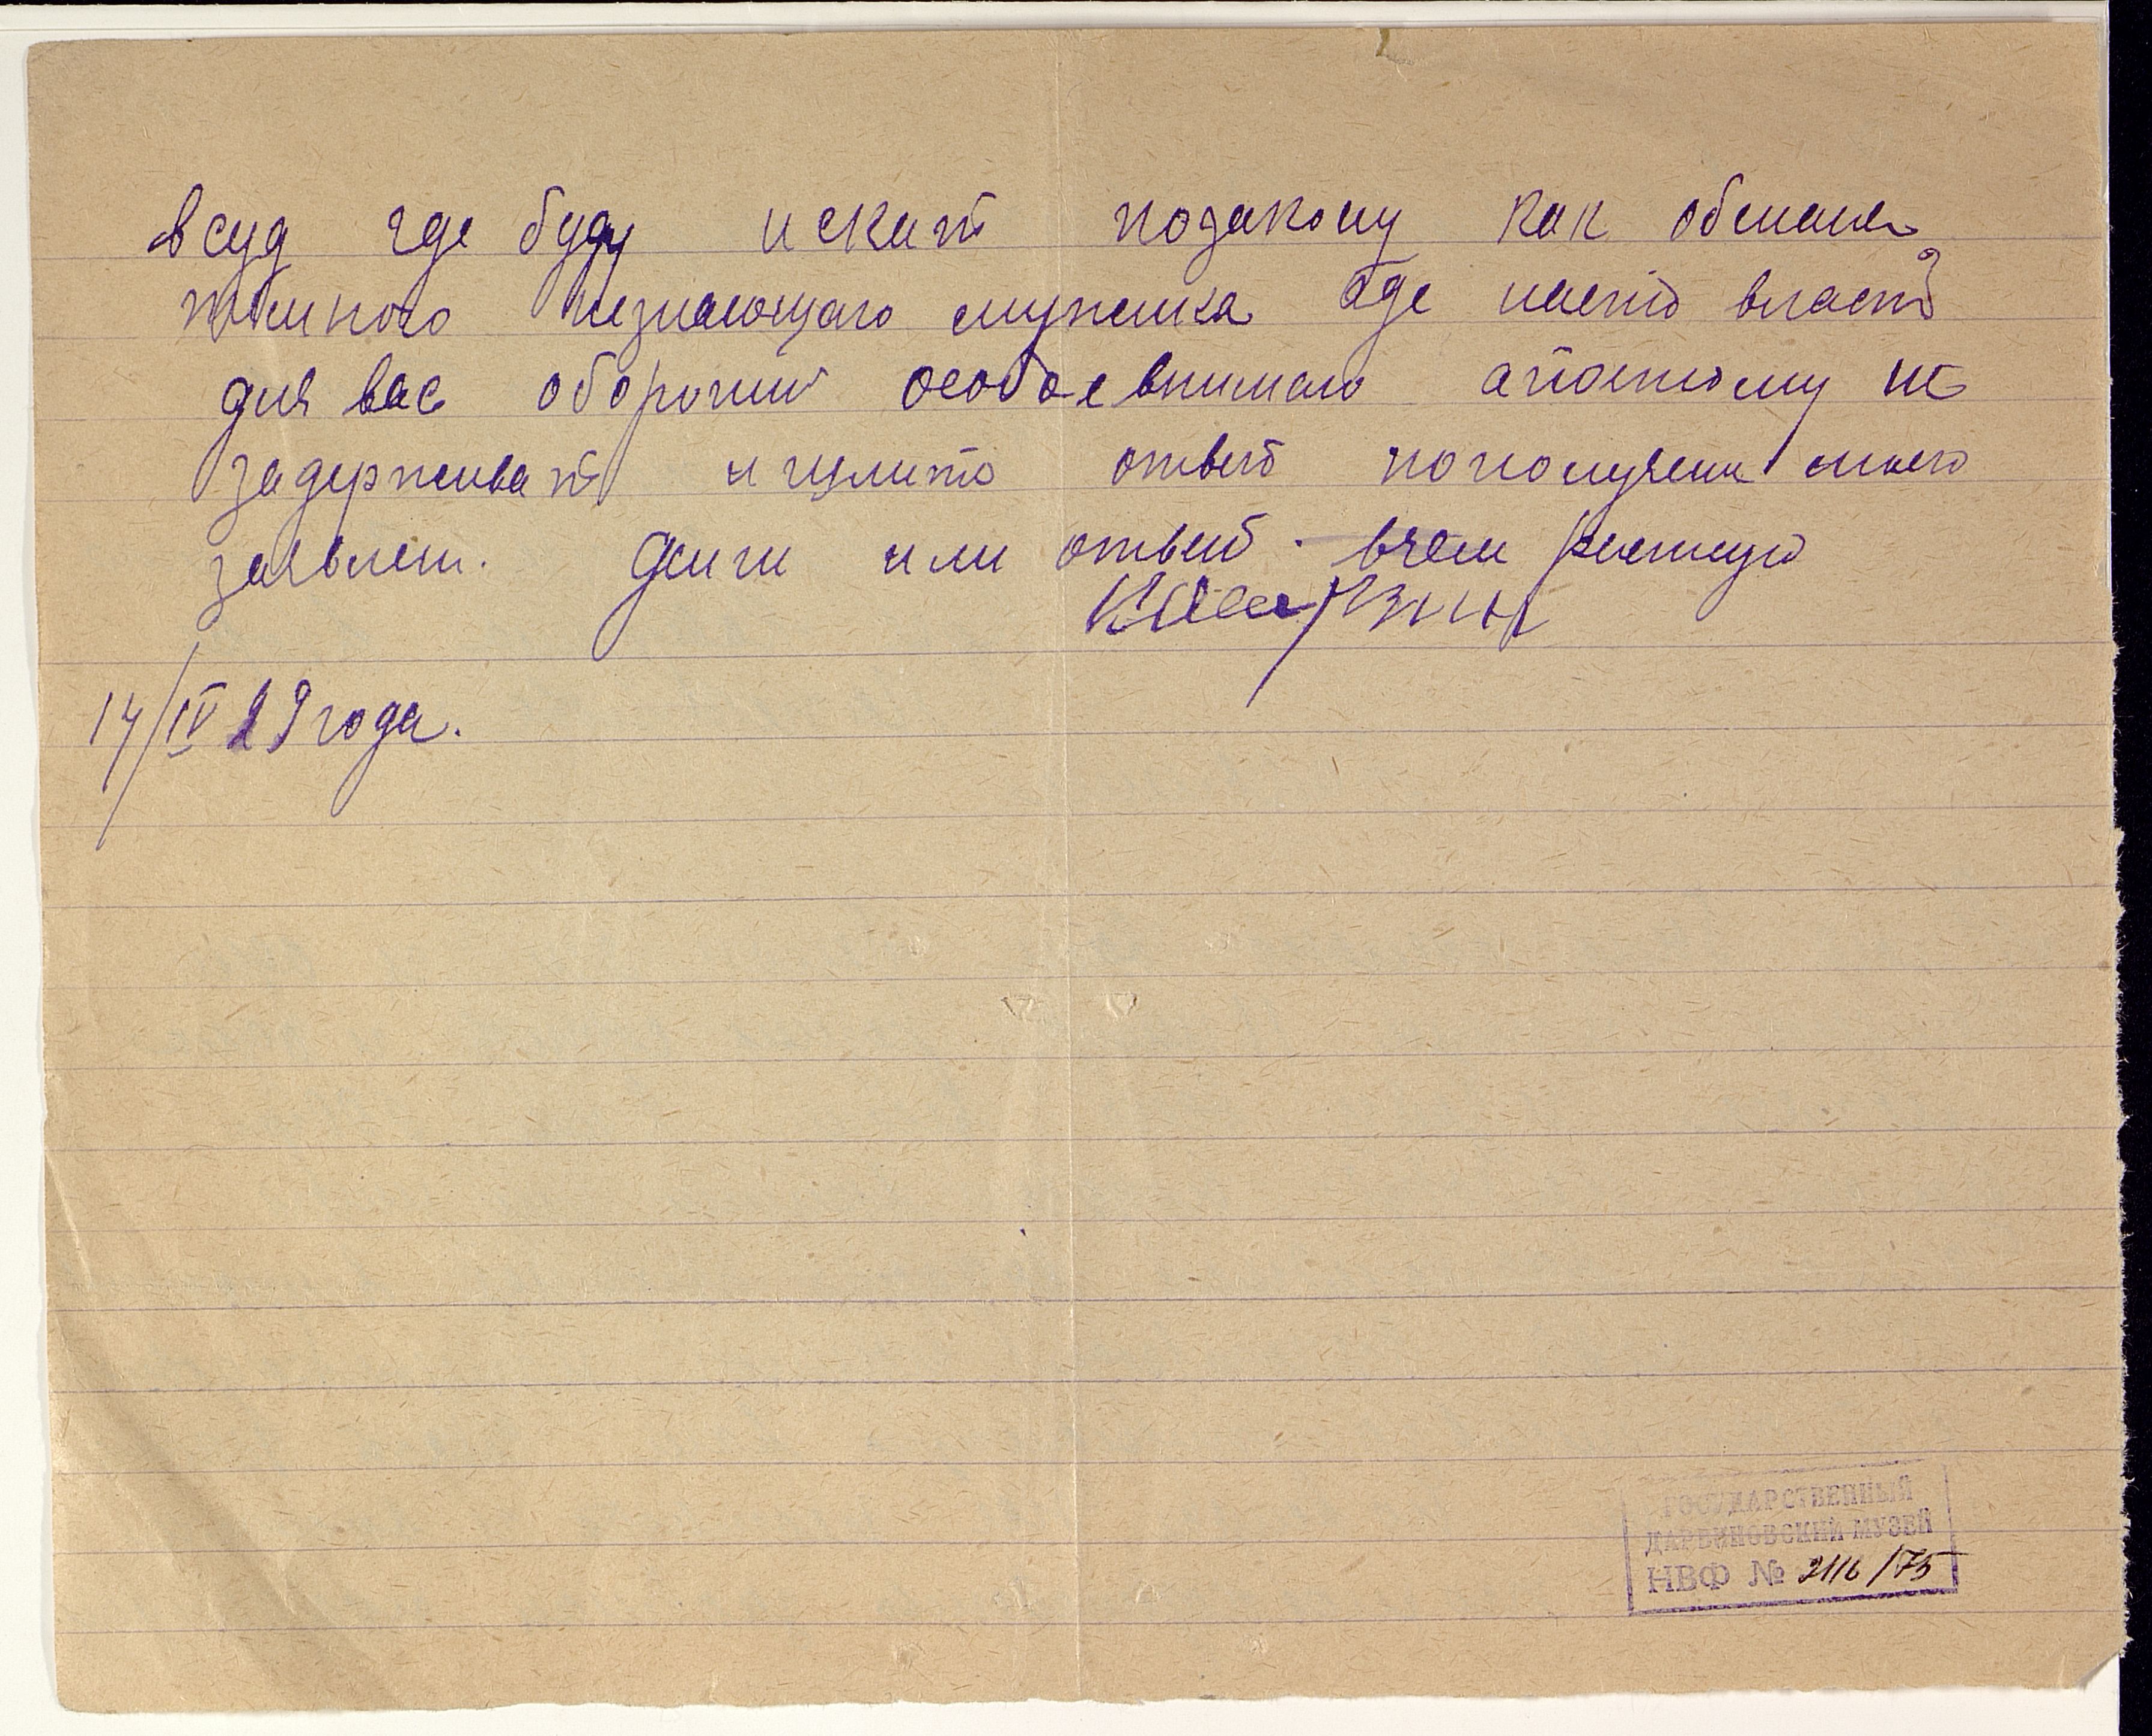 всуд где буду искат позакону как обман
темного незнающаго мужика где насто власт
для вас оборони особое внимано апоэтому не
задерживат и шлито ответ пополучени моего
заявлен. денги или ответ. вчем
14/IV 29 года.
ГОСУДАРСТВЕННЫЙ
ДАРВИНОВСКИЙ МУЗЕЙ
НВФ № 2116/75